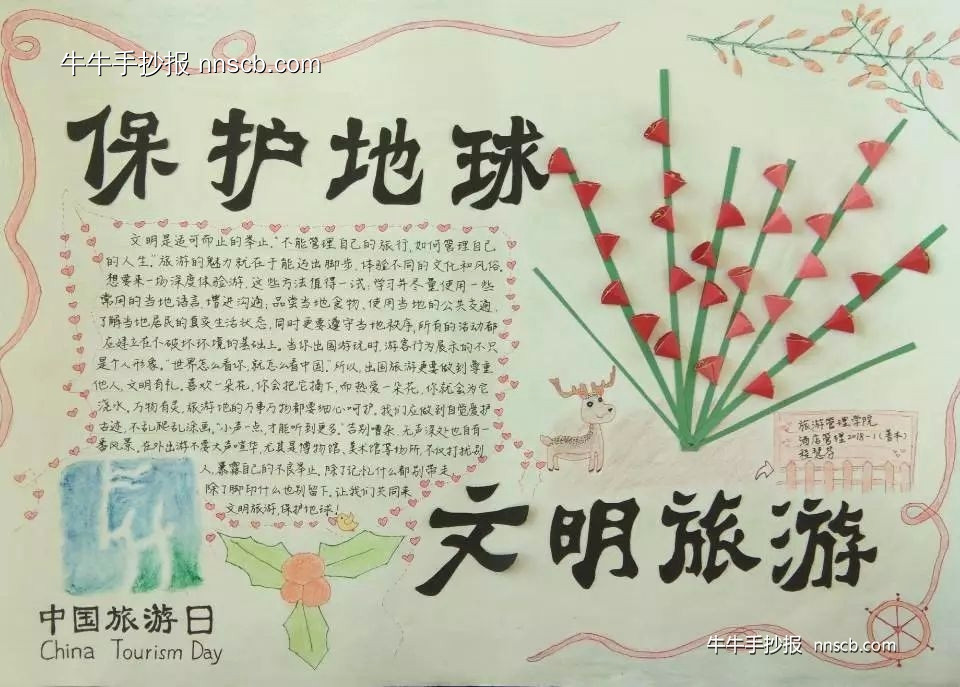 牛牛手抄报 nnscb.com
保护地球
文明是适可而止的举止。"不能管理自己的旅行,如何管理自己
的人生。"旅游的魅力就在于能迈出脚步,体验不同的文化和风俗。
想要来一场深度体验游,这些方法值得一试:学习并尽量使用一些
常用的当地语言,增进沟通;品尝当地食物,使用当地的公共交通,
了解当地居民的真实生活状态,同时更要遵守当地秩序,所有的活动都
应建立在不破坏环境的基础上。当你出国游玩时,游客行为展示的不只
是个人形象。"世界怎么看你,就怎么看中国。"所以,出国旅游更要做到尊重
他人,文明有礼。喜欢一朵花,你会把它摘下,而热爱一朵花,你就会为它
浇水。万物有灵,旅游地的万事万物都要细心呵护。我们应做到自觉爱护
古迹,不乱爬乱涂画。"小声一点,才能听到更多。"告别嘈杂,无声深处也自有一
番风景。在外出游不要大声喧华,尤其是博物馆、美术馆等场所,不仅打扰别
人,暴露自己的不良举止。除了记忆什么都别带走
除了脚印什么也别留下。让我们共同来
文明旅游,保护地球!
旅游管理学院
酒店管理2018-1(春季)
文明旅游
中国旅游日
China Tourism Day
牛牛手抄报 nnscb.com